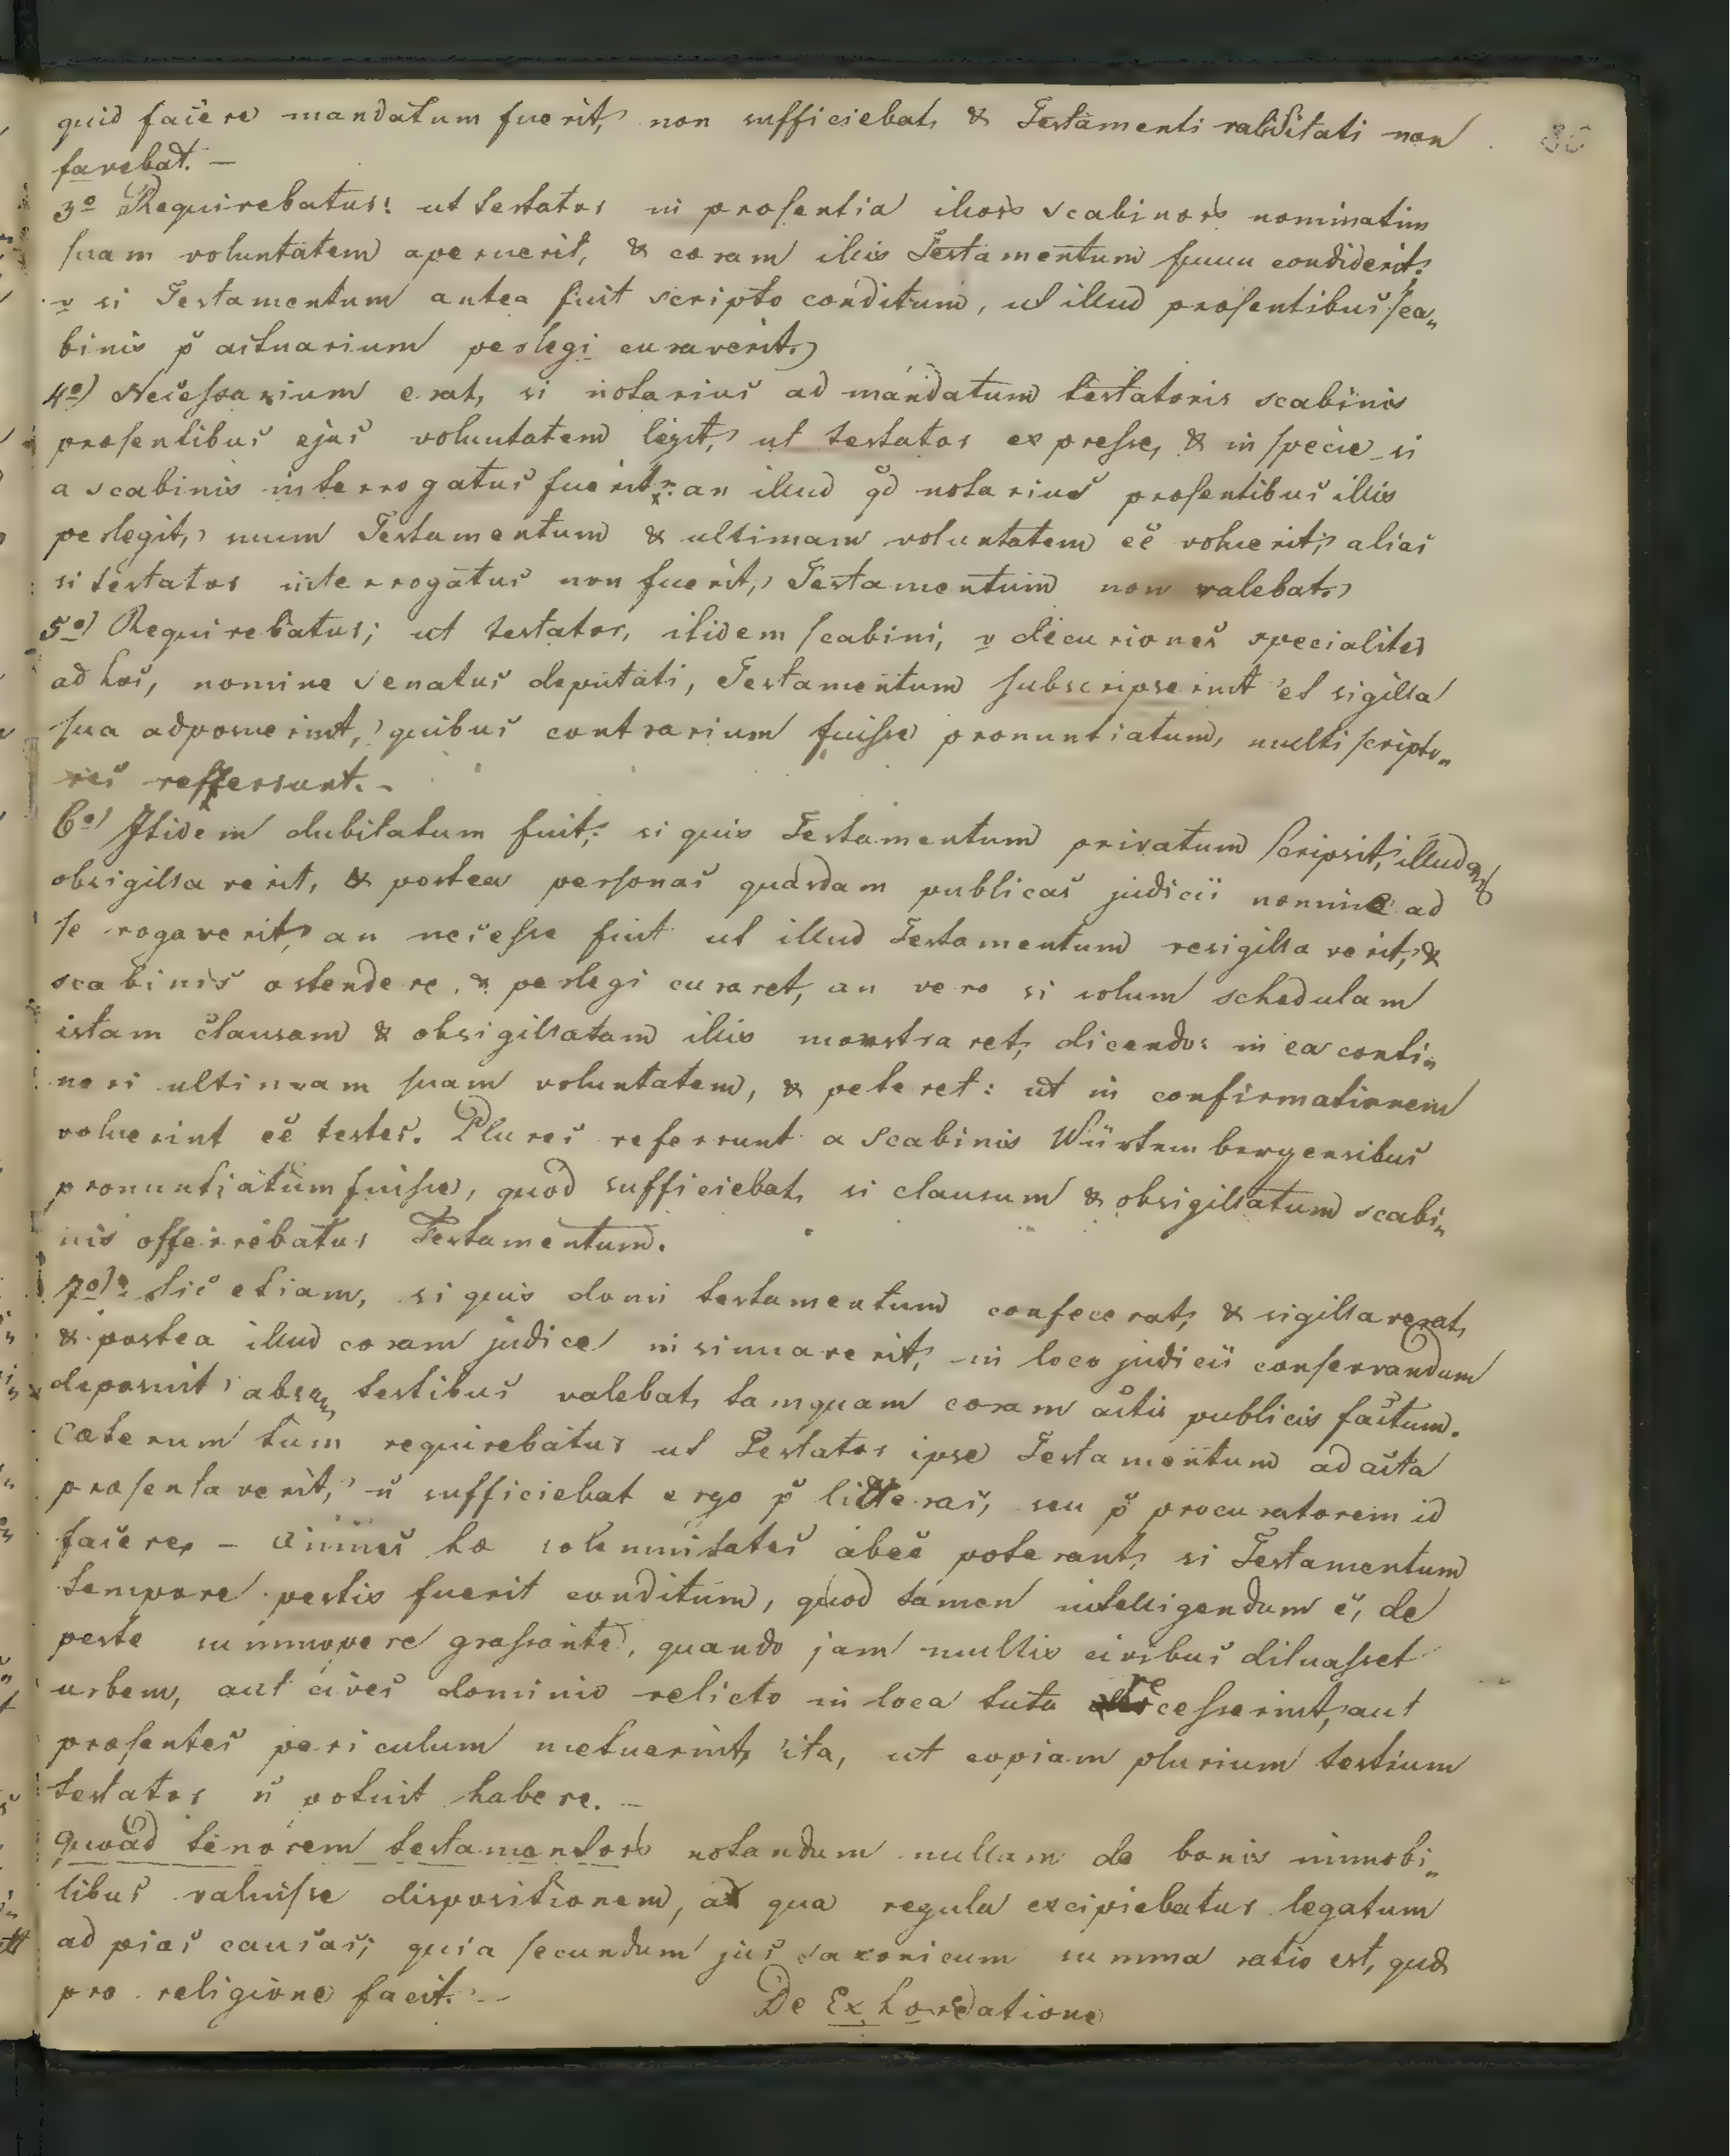 quid facere mandatum fuerit, non sufficiebat, & Testamenti validitati non
favebat. —
80
3o Requirebatur: ut testator in præsentia illor scabinor nominatim
suam voluntatem aperuerit, & coram illis Testamentum suum condiderit:
v si Testamentum antea fuit scripto conditum, ut illud præsentibus sca„
binis p actuarium perlegi curaverit,
4o) Necessarium erat, si notarius ad mandatum testatoris scabinis
præsentibus ejus voluntatem legit, ut testator expresse, & in specie si
a scabinis interrogatus fuerit: an illud qd notarius præsentibus illis
perlegit, suum Testamentum & ultimam voluntatem eē voluerit, alias
si testator interrogatus non fuerit, Testamentum non valebat,
5o) Requirebatur; ut testator, itidem scabini, v decuriones specialiter
ad hoc, nomine senatus deputati, Testamentum subscripserint et sigilla
sua adposuerint, quibus contrarium fuisse pronuntiatum, multi scripto„
res refferrunt. -
6o) Itidem dubitatum fuit: si quis Testamentum privatum scripsit, illudq
obsigillaverit, & postea personas quasdam publicas judicii nomine ad
se rogaverit, an necesse fuit ut illud Testamentum resigillaverit, &
scabinis ostendere & perlegi curaret, an vero si solum schedulam
istam clausam & obsigillatam illis monstraret, dicendo: in ea conti„
neri ultimam suam voluntatem, & peteret: ut in confirmationem
voluerint eē testes. Plures referrunt a Scabinis Würtembergensibus
pronuntiatum fuisse, quod sufficiebat, si clausum & obsigillatum scabi„
nis offerrebatur Testamentum.
7o) Sic etiam, si quis domi testamentum confecerat, & sigillaverat,
& postea illud coram judice insinuaverit, in loco judicii conservandum
deposuit, absq testibus valebat, tamquam coram actis publicis factum.
Cæterum tum requirebatur ut Testator ipse Testamentum ad acta
præsentaverit, n sufficiebat ergo p litteras, seu p procuratorem id
facere, - omnes hæ solennitates abeē poterant, si Testamentum
tempore pestis fuerit conditum, quod tamen intelligendum ē, de
peste summopere grassante, quando jam multis civibus diluasset
urbem, aut cives dominio relicto in loca tuta recesserint, aut
præsentes periculum metuerint, ita, ut copiam plurium testium
testator n potuit habere. -
Quoad tenorem testamentor notandum nullam de bonis immobi„
libus valuisse dispositionem, a qua regula excipiebatur legatum
ad pias causas; quia secundum jus saxonicum summa ratio est, quæ
pro religione facit. -
De Exhæredatione